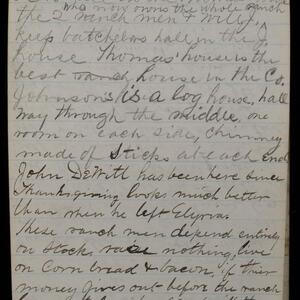 who now owns the whole ranch
the 2 ranch men + Willy
keep batchelors hall in the J.
house Thomas' house is the
best ranch house in the Co.
Johnson's is a log house, hall
way through the middle, one
room on each side, chimney
made of sticks at each end
John DeWitt has been here since
Thanksgiving looks much better
than when he left Elyria.
These ranch men depend entirely
on stock, raise nothing, live
on Corn bread & bacon, if their
money gives out before the ranch